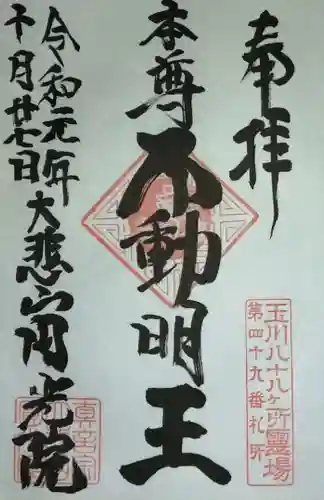 奉拝
玉川八十八ヶ所霊場
第四十九番札所
本尊不動明王
令和元年
十月廿七日
大悲山円光院
真言宗